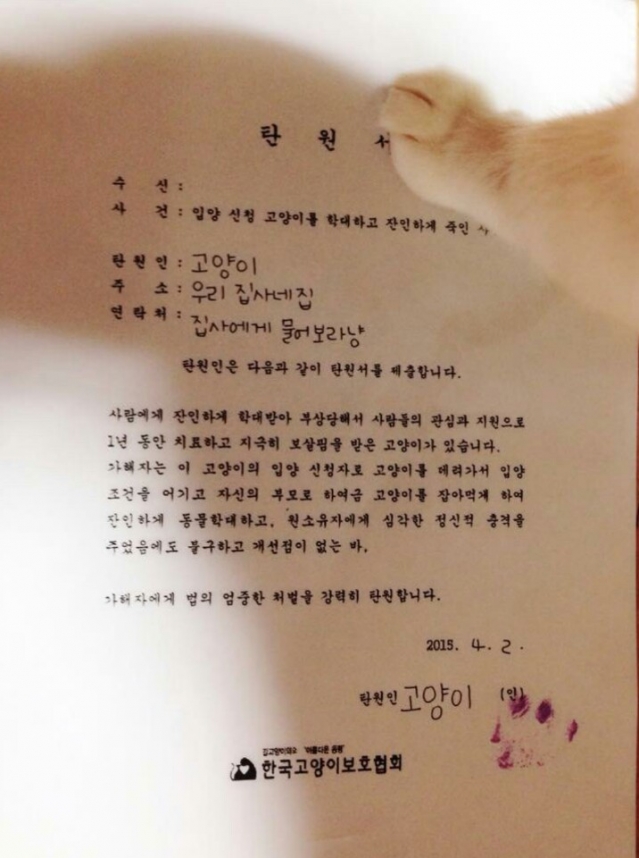 탄 원
수 신 :
사 건 : 입양 신청 고양이를 학대하고 잔인하게 죽인
탄원인 : 고양이
주 소 : 우리 집사네집
연락처 : 집사에게 물어보라냥
탄원인은 다음과 같이 탄원서를 제출합니다.
사람에게 잔인하게 학대받아 부상당해서 사람들의 관심과 지원으로
1년 동안 치료하고 지극히 보살핌을 받은 고양이가 있습니다.
가해자는 이 고양이의 입양 신청자로 고양이를 데려가서 입양
조건을 어기고 자신의 부모로 하여금 고양이를 잡아먹게 하여
잔인하게 동물학대하고, 원소유자에게 심각한 정신적 충격을
주었음에도 불구하고 개선점이 없는 바,
가해자에게 법의 엄중한 처벌을 강력히 탄원합니다.
2015. 4. 2.
탄원인 고양이 (인)
길고양이와의 '아름다운 공존'
한국고양이보호협회